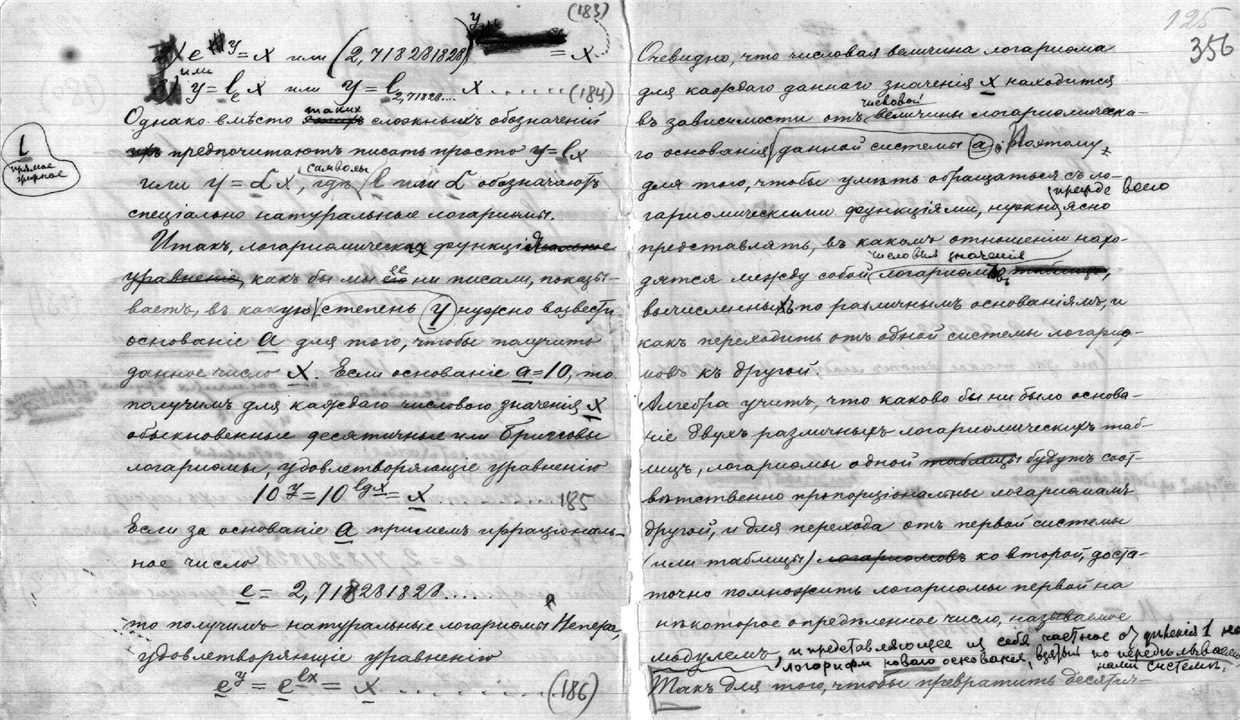 (183)
e^y = x или (2,718281828)^y = x
или
y = l_e x или y = l_2,71828.... x ...... (184)
Однако вмѣсто такихъ сложныхъ обозначеній
предпочитаютъ писать просто y = lx
или y = Lx, гдѣ символы l или L обозначаютъ
спеціально натуральные логариѳмы.
l
прямое
жирное
Итакъ, логариѳмическая функція
уравненіе, какъ бы мы ее ни писали, показы-
ваетъ, въ какую степень y нужно возвести
основаніе a для того, чтобы получить
данное число x. Если основаніе a = 10, то
получимъ для каждаго числового значенія x
обыкновенные десятичные или Бригговы
логариѳмы, удовлетворяющіе уравненію
10^y = 10^lgx = x 185
Если за основаніе a примемъ ирраціональ-
ное число
e = 2,718281828.....
то получимъ натуральные логариѳмы Непера,
удовлетворяющіе уравненію
e^y = e^lx = x ........ (186)
125
356
Очевидно, что числовая величина логариѳма
для каждаго даннаго значенія x находится
въ зависимости отъ числовой величины логариѳмическа-
го основанія данной системы a. Поэтому
для того, чтобы умѣть обращаться съ ло-
гариѳмическими функціями, нужно прежде всего ясно
представлять, въ какомъ отношеніи нахо-
дятся между собой числовыя значенія логариѳмовъ таблицъ,
вычисленныхъ по различнымъ основаніямъ, и
какъ переходить отъ одной системы логариѳ-
мовъ къ другой.
Алгебра учитъ, что каково бы ни было основа-
ніе двухъ различныхъ логариѳмическихъ таб-
лицъ, логариѳмы одной таблицы будутъ соот-
вѣтственно пропорціональны логариѳмамъ
другой, и для перехода отъ первой системы
(или таблицы) логариѳмовъ ко второй, доста-
точно помножить логариѳмы первой на
нѣкоторое опредѣленное число, называемое
модулемъ, и представляющее изъ себя частное отъ дѣленія 1 на
логарифм новаго основанія, взятый по передѣлываемой
нами системы.
Такъ для того, чтобы превратить десятич-